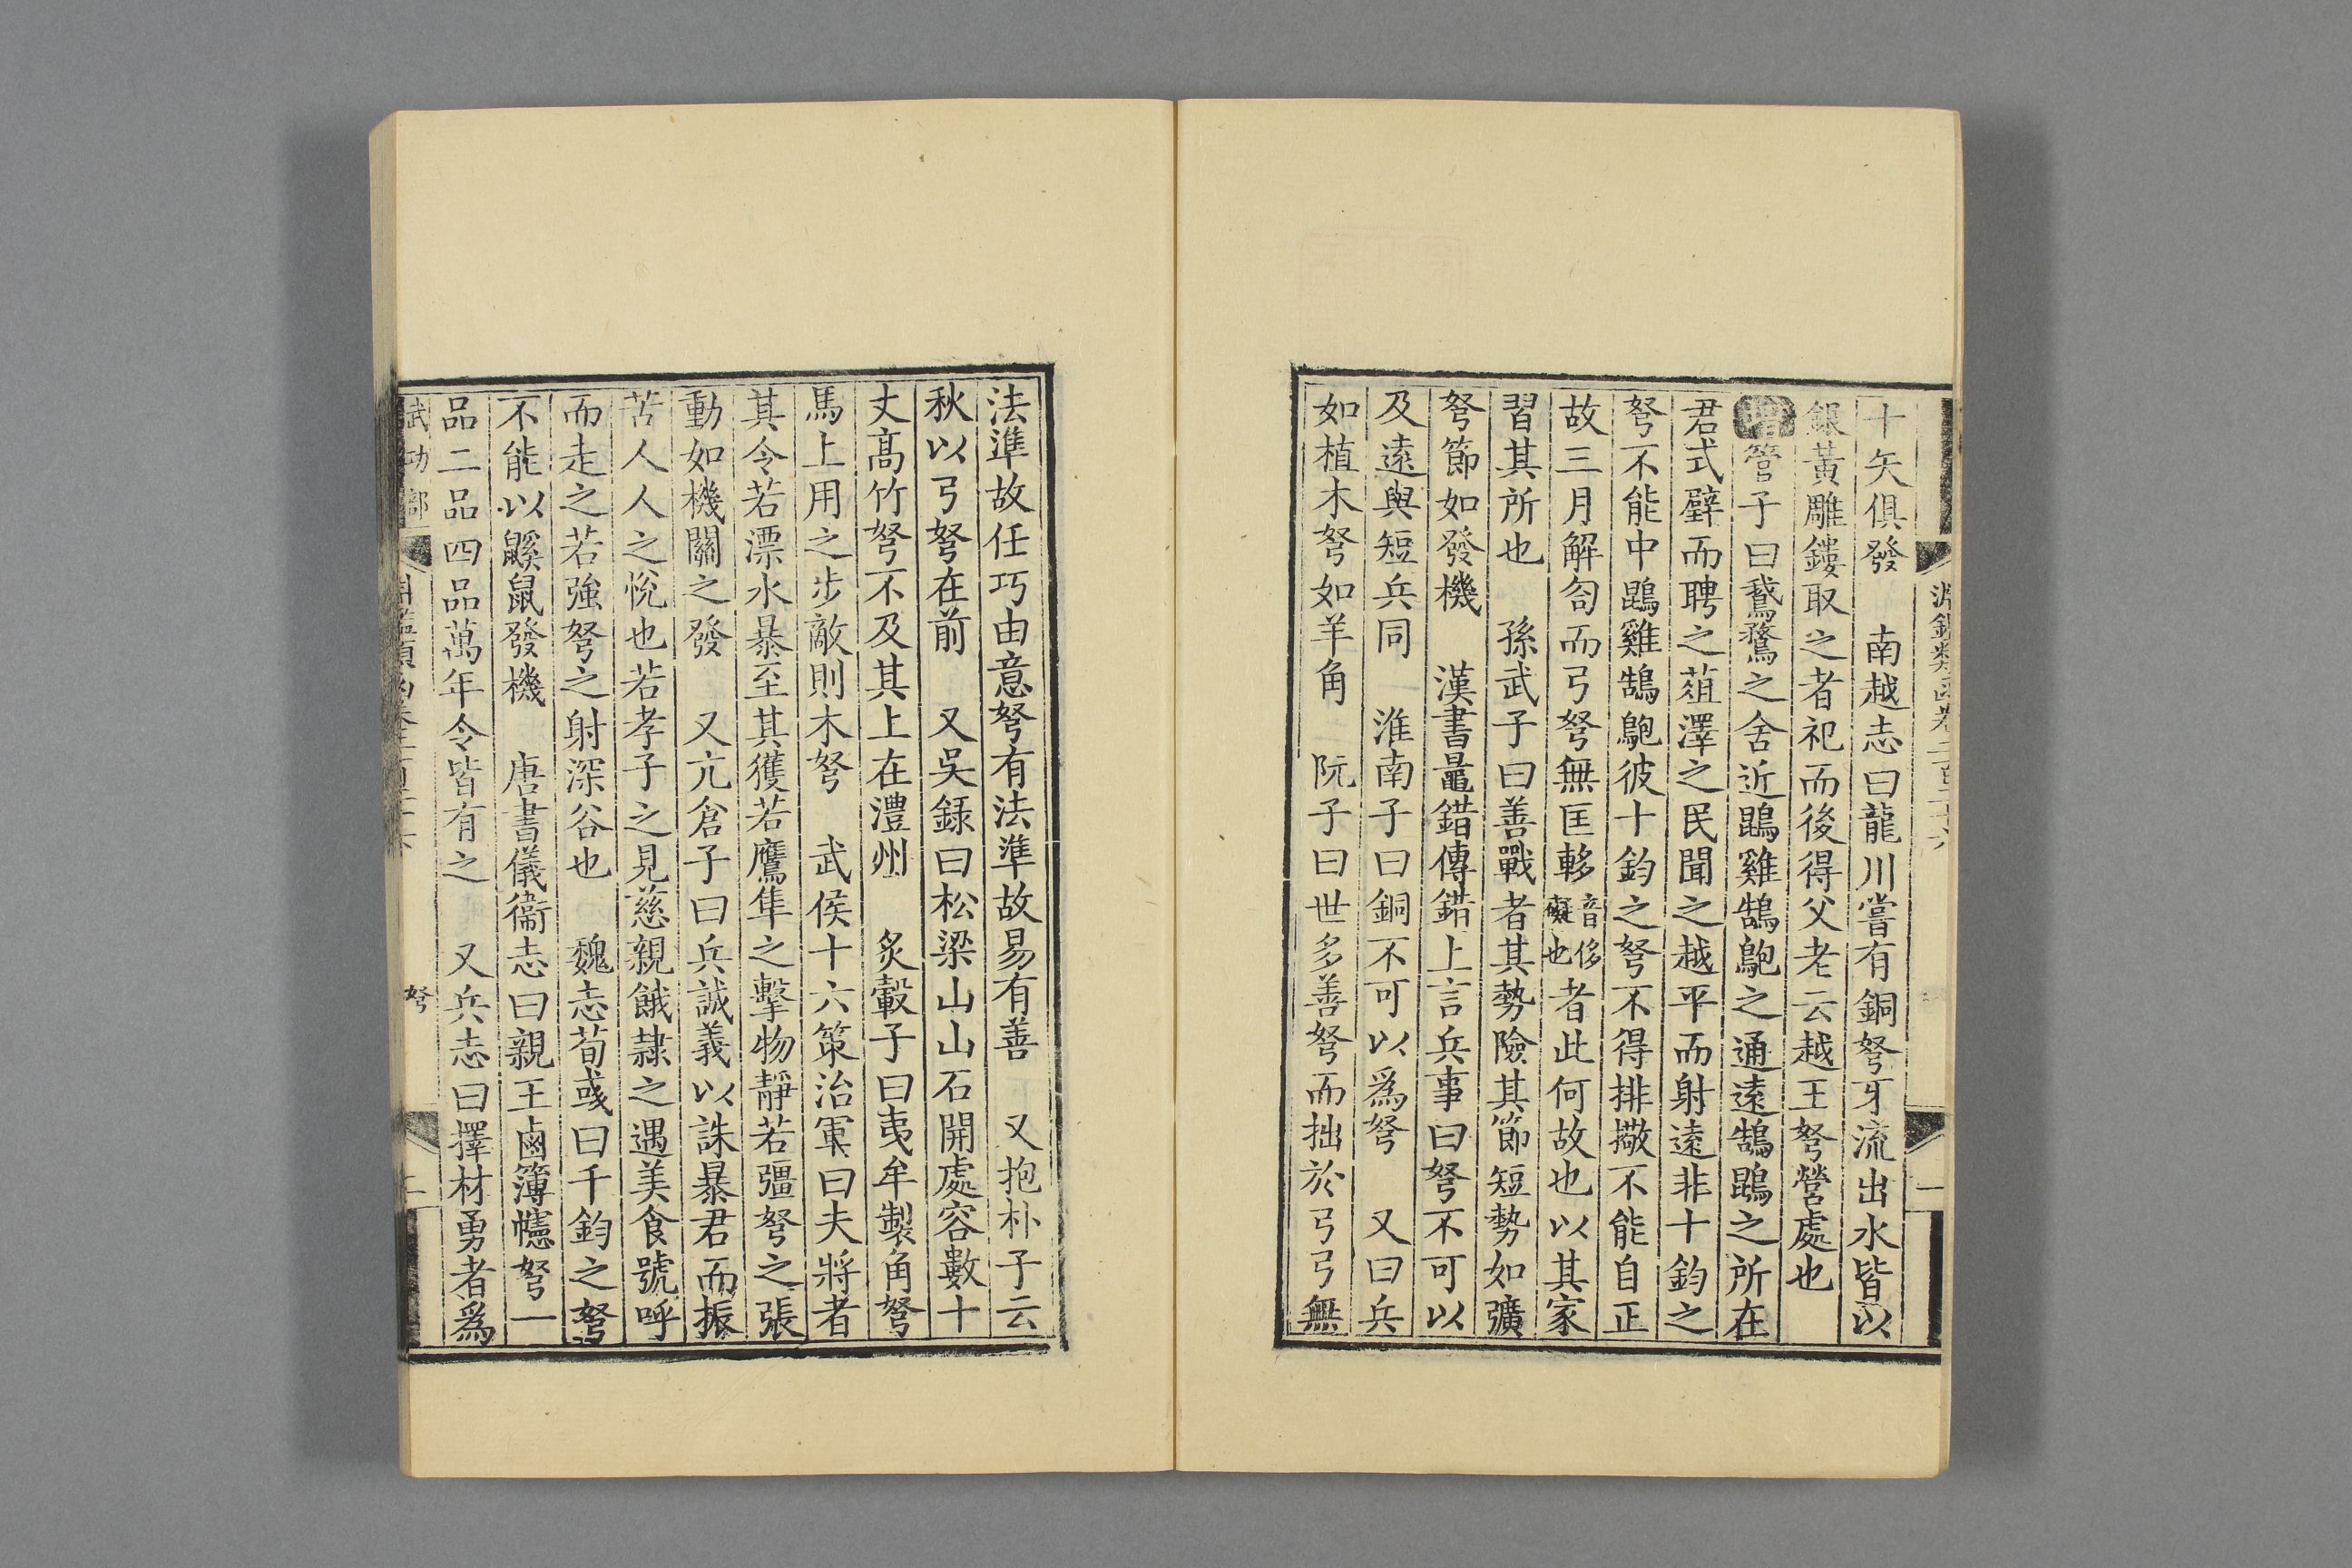 淵鑑類函卷二百二十六
一
十矢俱發　南越志曰龍川嘗有銅弩牙流出水皆以
銀黃雕鏤取之者祀而後得父老云越王弩營處也
增管子曰鵞鶩之舍近鵾雞鵠鴇之通遠鵠鵾之所在
君式璧而聘之菹澤之民聞之越平而射遠非十鈞之
弩不能中鵾雞鵠鴇彼十鈞之弩不得排檠不能自正
故三月解匋而弓弩無匡㢋音侈礙也者此何故也以其家
習其所也　孫武子曰善戰者其勢險其節短勢如彍
弩節如發機　漢書鼂錯傳錯上言兵事曰弩不可以
及遠與短兵同　淮南子曰銅不可以爲弩　又曰兵
如植木弩如羊角　阮子曰世多善弩而拙於弓弓無
法準故任巧由意弩有法準故易有善　又抱朴子云
秋以弓弩在前　又吳録曰松梁山山石開處容數十
丈髙竹弩不及其上在澧州　炙轂子曰夷牟製角弩
馬上用之步敵則木弩　武侯十六策治軍曰夫將者
其令若漂水暴至其獲若鷹隼之擊物靜若彊弩之張
動如機關之發　又亢倉子曰兵誠義以誅暴君而振
苦人人之悅也若孝子之見慈親餓隷之遇美食號呼
而走之若強弩之射深谷也　魏志荀彧曰千鈞之弩
不能以鼷鼠發機　唐書儀衞志曰親王鹵簿幰弩一
品二品四品萬年令皆有之　又兵志曰擇材勇者爲
武功部
弩
二